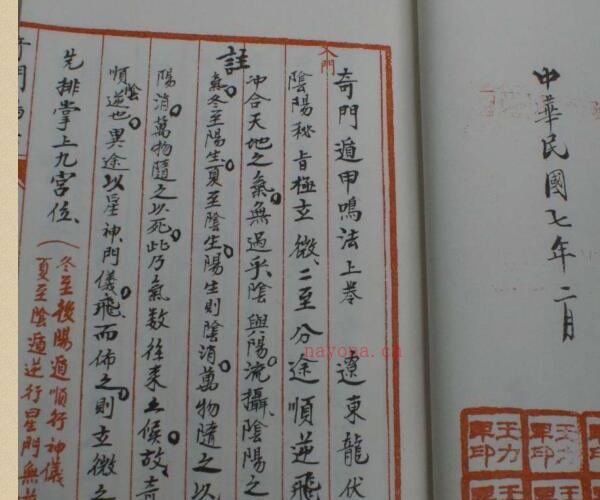 中華民國七年二月
王力軍印
王力軍印
入門
奇門遁甲鳴法上卷 遼東龍伏
陰陽秘旨極玄微二至分途順逆飛
註
冲合天地之氣無過乎陰與陽流攝陰陽之
氣冬至陽生夏至陰生陽生則陰消萬物隨之以
陽消萬物隨之以死此乃氣數往來之候故奇
順陰逆也異途以星神門儀飛而佈之則玄微之
先排掌上九宮位
(冬至後陽遁順行神儀
夏至陰遁逆行星門無
奇門
nayona.cn